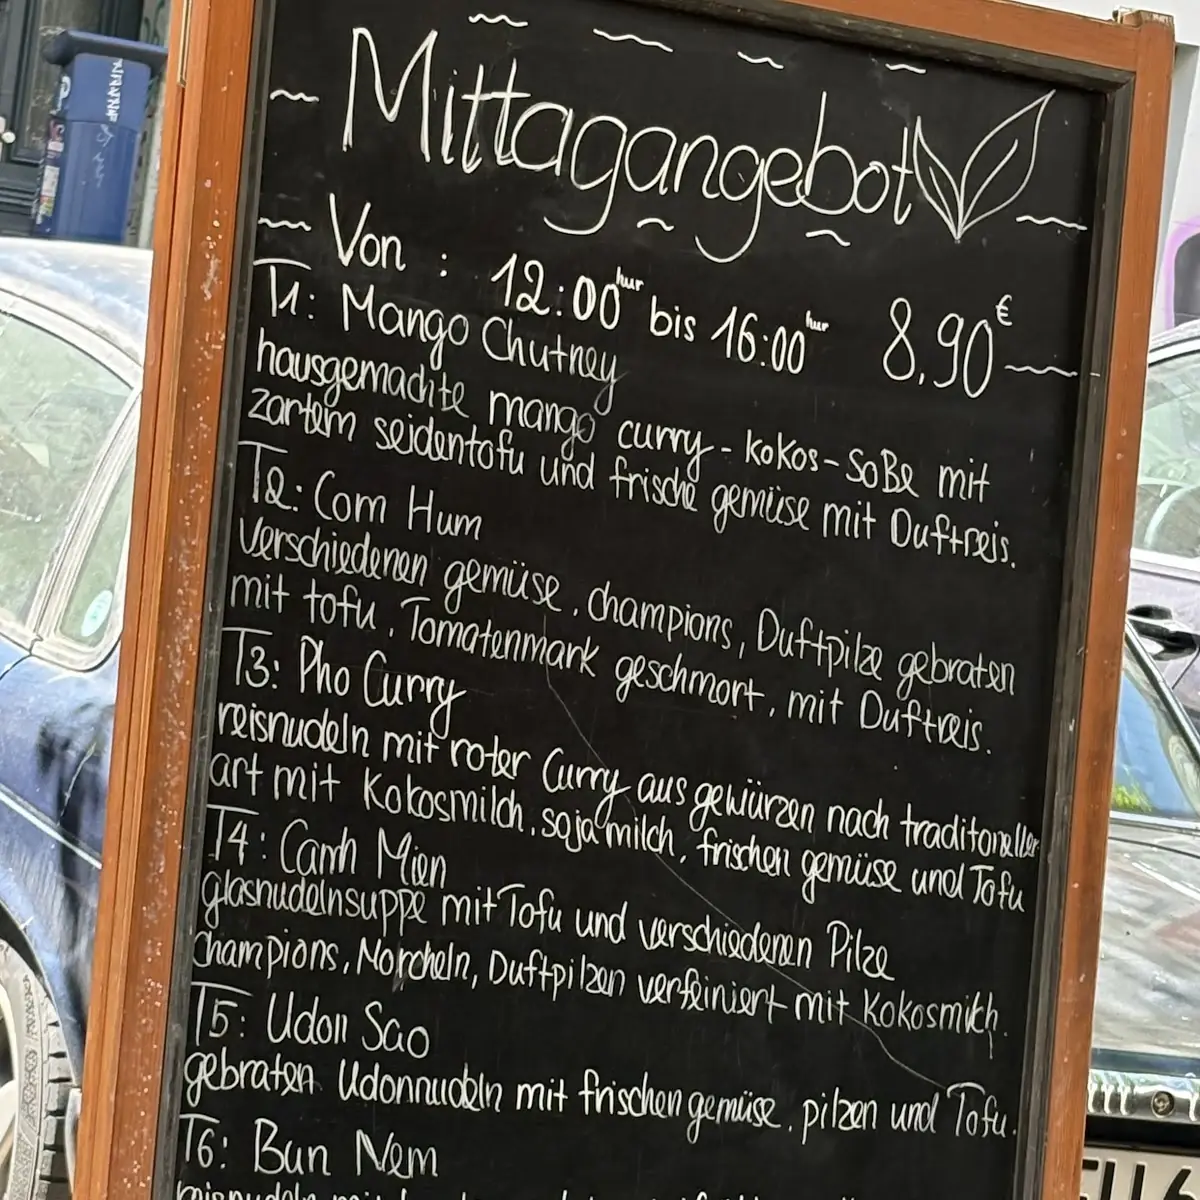 Mittagangebot
Von : 12:00 hur bis 16:00 hur 8,90 €
T1: Mango Chutney
hausgemachte mango curry - kokos - Soße mit
zartem seidentofu und frische gemüse mit Duftreis.
T2: Com Hum
Verschiedenen gemüse, champions, Duftpilze gebraten
mit tofu, Tomatenmark geschmort, mit Duftreis.
T3: Pho Curry
reisnudeln mit roter Curry aus gewürzen nach traditoneller
art mit Kokosmilch, sojamilch, frischen gemüse und Tofu
T4: Canh Mien
glasnudelnsuppe mit Tofu und verschiedenen Pilze
champions, Morcheln, Duftpilzen verfeiniert mit Kokosmilch.
T5: Udon Sao
gebraten Udonnudeln mit frischen gemüse, pilzen und Tofu.
T6: Bun Nem
reisnudeln mit